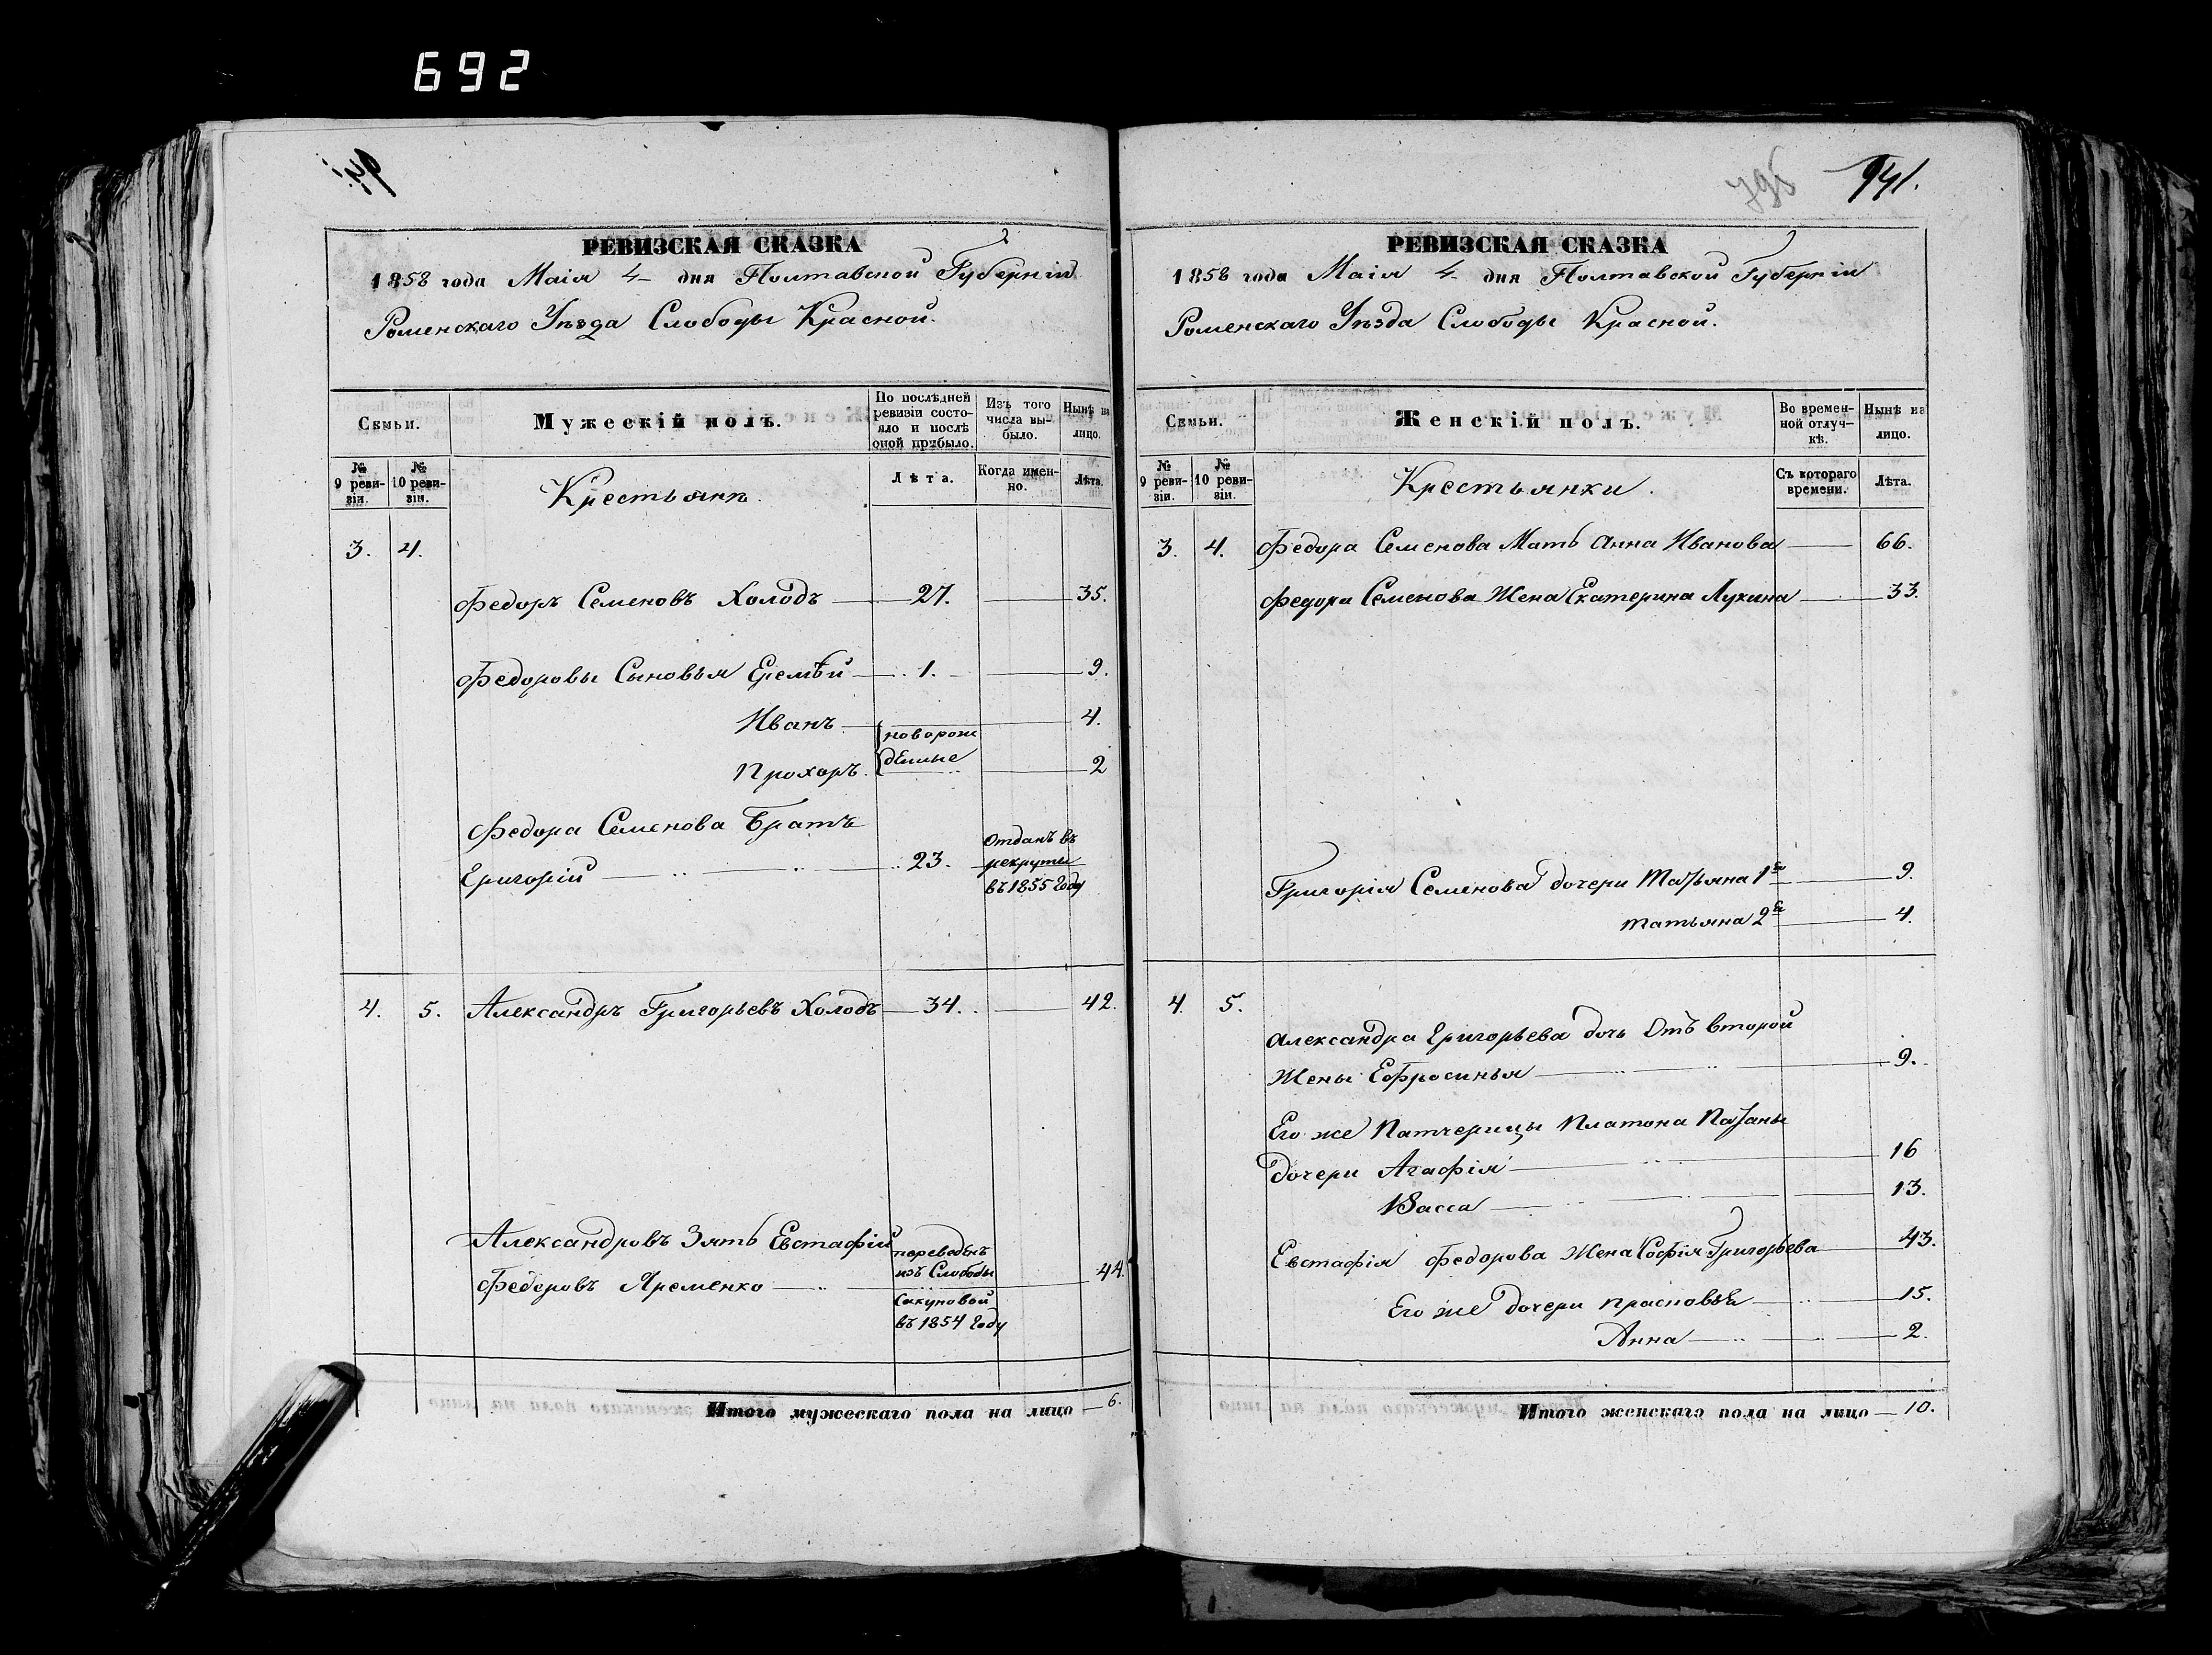 692
РЕВИЗСКАЯ СКАЗКА
1858 года Маія 4 дня Полтавской Губерніи
Роменскаго Уѣзда Слободы Красной.
Семьи.
Мужескій полъ.
По послѣдней ревизіи состояло и послѣ оной прибыло.
Изъ того числа выбыло.
Нынѣ на лицо.
№ 9 ревизіи.
№ 10 ревизіи.
Крестьянъ.
Лѣта.
Когда именно.
Лѣта.
3. 4.
Федоръ Семеновъ Холодъ 27. 35.
Федоровы Сыновья Еремѣй 1. 9.
Иванъ 4.
новорож
денные
Прохоръ 2
Федора Семенова Братъ
Григорій 23. Отданъ въ
рекруты
въ 1855 Году
4. 5. Александръ Григорьевъ Холодъ 34. 42.
Александровъ Зять Евстафій
Федоровъ Яременко 44.
переведенъ
изъ Слободы
Сакуновой
въ 1854 Году
Итого мужескаго пола на лицо 6.
941.
РЕВИЗСКАЯ СКАЗКА
1858 года Маія 4 дня Полтавской Губерніи
Роменскаго Уѣзда Слободы Красной.
Семьи.
Женскій полъ.
Во временной отлучкѣ.
Нынѣ на лицо.
№ 9 ревизіи.
№ 10 ревизіи.
Крестьянки.
Съ котораго времени.
Лѣта.
3. 4. Федора Семенова Мать Анна Иванова 66.
Федора Семенова Жена Екатерина Лукина 33.
Григорія Семенова дочери Татьяна 1я 9.
Татьяна 2я 4.
4. 5.
Александра Григорьева дочь Отъ второй
Жены Ефросинья 9.
Его же Патчерицы Платона
дочери Агафія 16
Васса 13.
Евстафія Федорова Жена Софія Григорьева 43.
Его же дочери Прасковья 15.
Анна 2.
Итого женскаго пола на лицо 10.